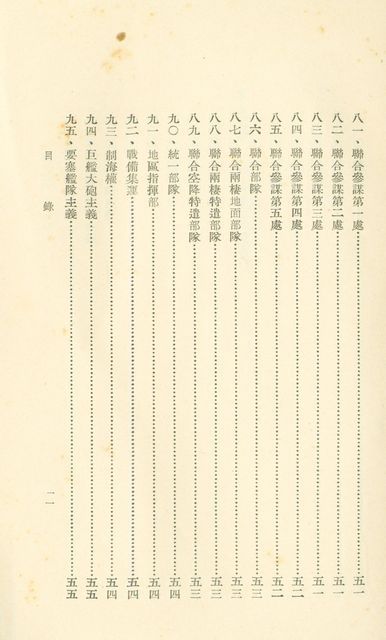 八一、聯合參謀第一處………五一
八二、聯合參謀第二處………五一
八三、聯合參謀第三處………五一
八四、聯合參謀第四處………五二
八五、聯合參謀第五處………五二
八六、聯合部隊………五三
八七、聯合兩棲地面部隊………五三
八八、聯合兩棲特遣部隊………五三
八九、聯合空降特遣部隊………五三
九〇、統一部隊………五四
九一、地區指揮部………五四
九二、戰備集運………五四
九三、制海權………五四
九四、巨艦大砲主義………五五
九五、要塞艦隊主義………五五
目錄
一一